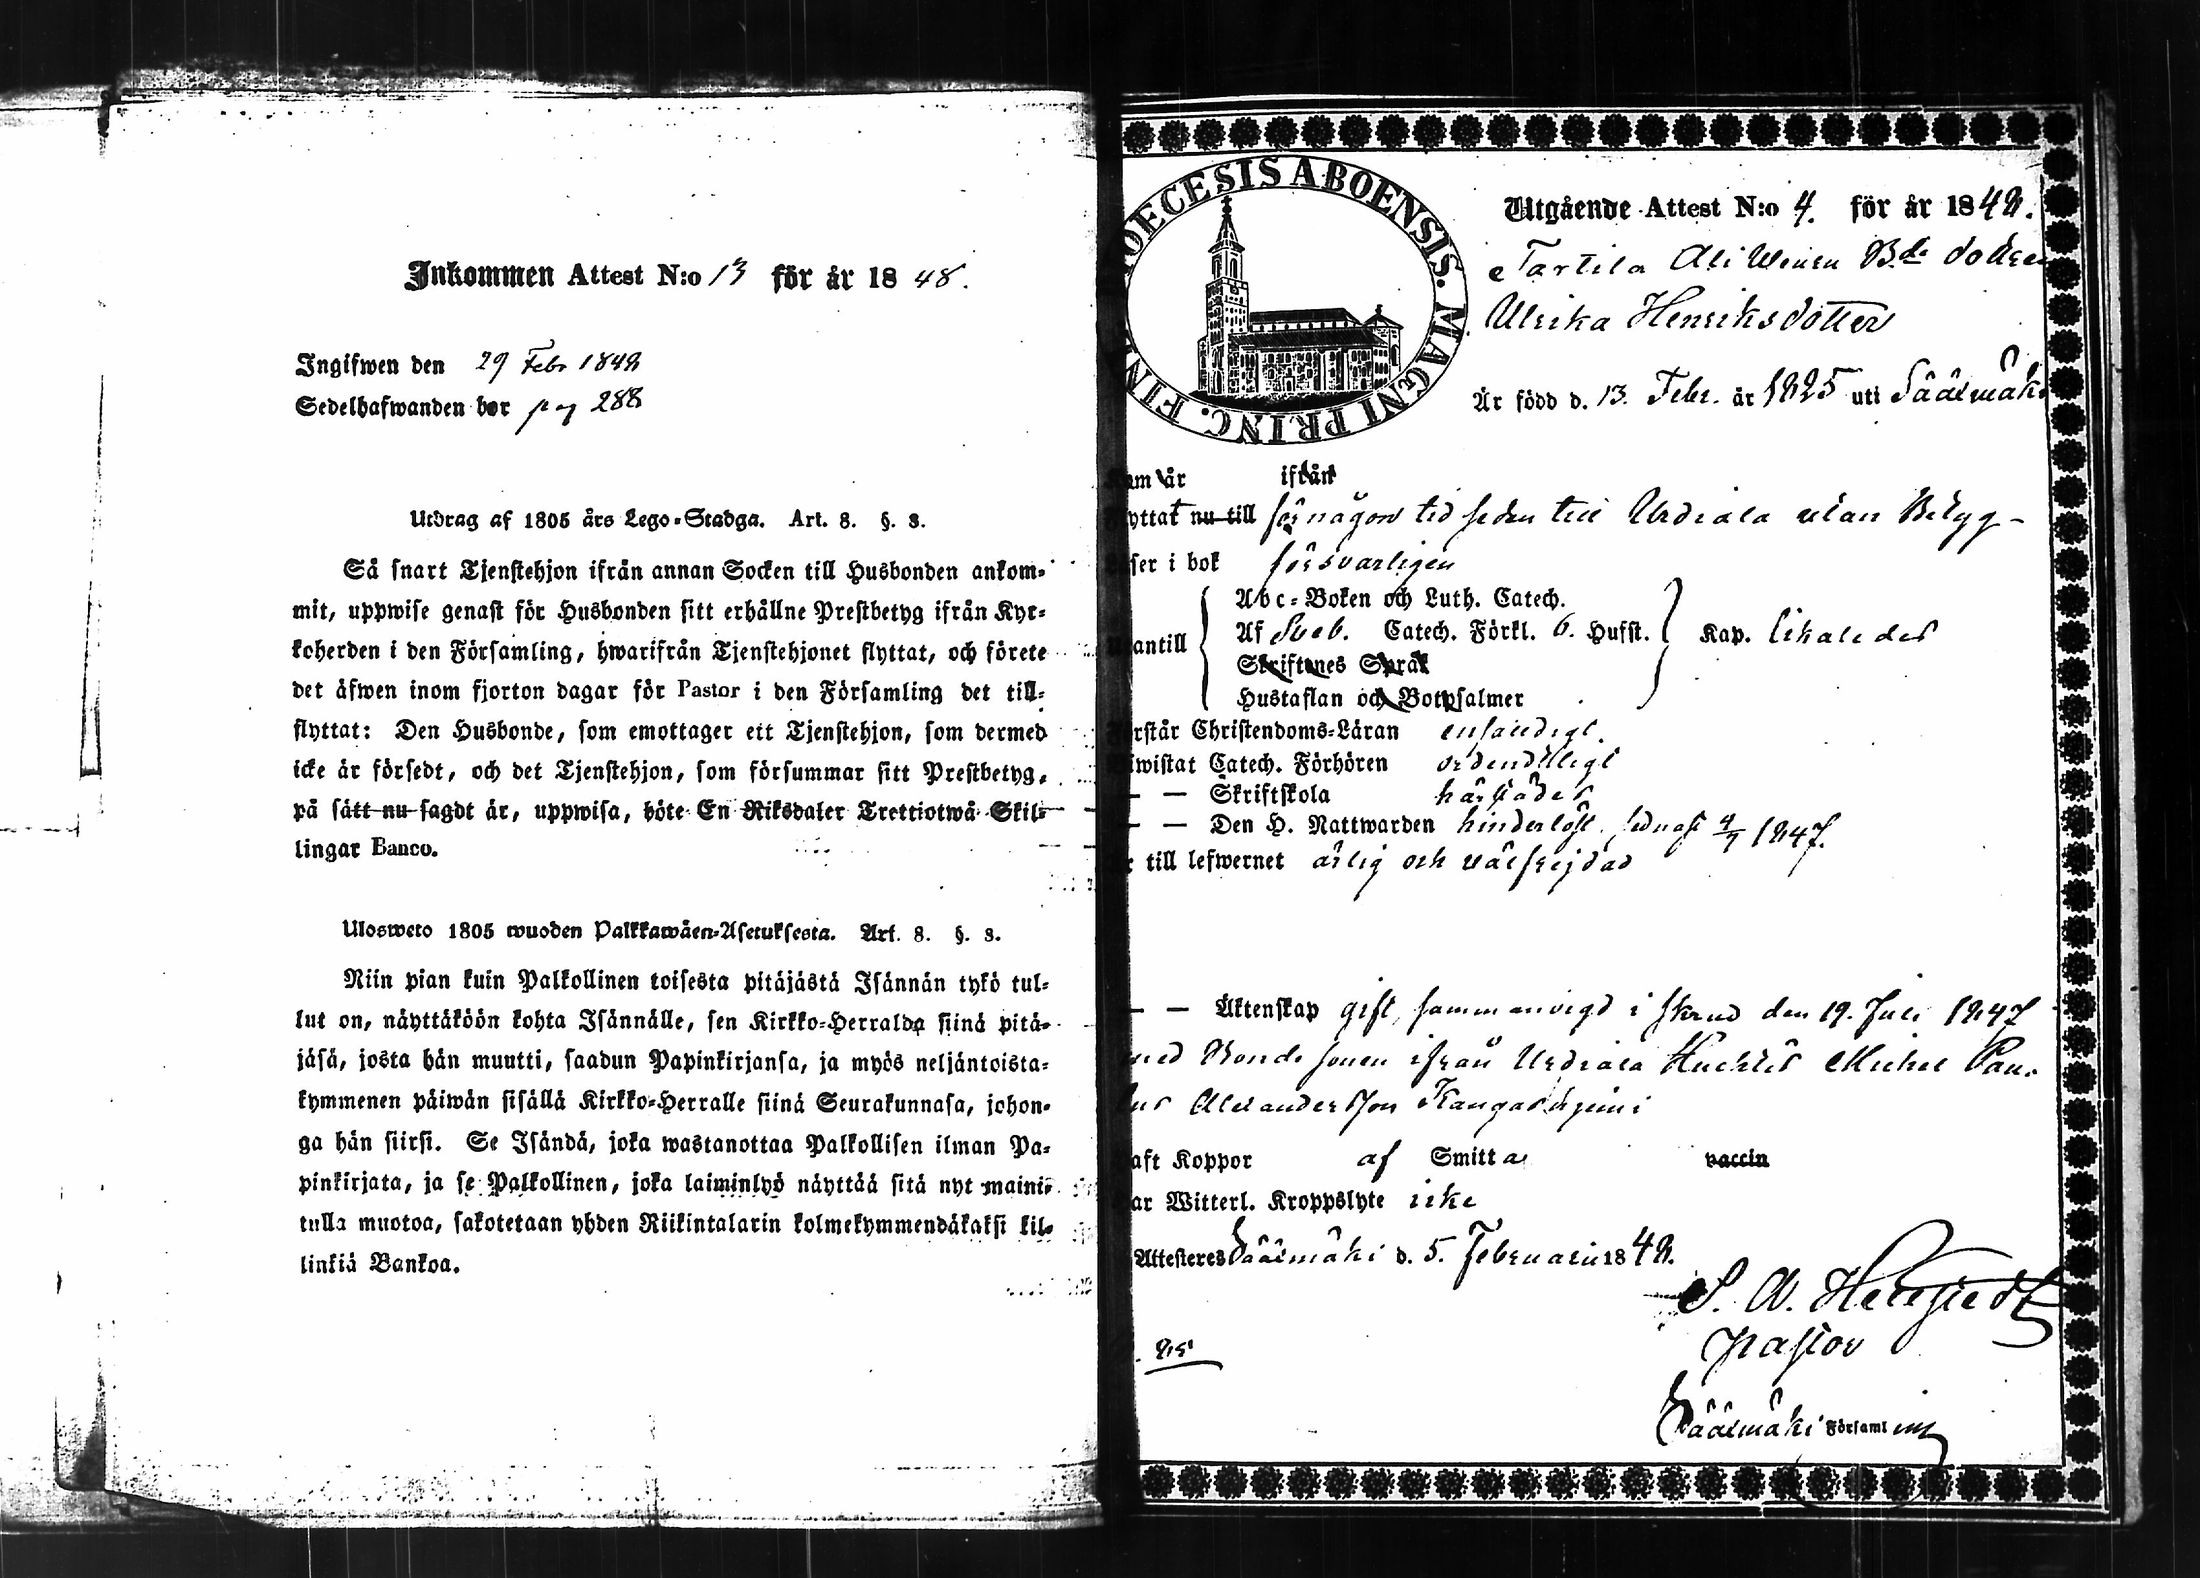 Inkommen Attest N:o 13 för år 1848.
Ingifwen den 29 Febr 1848
Sedelhafwanden bor pag 288
Utdrag af 1805 års Lego-Stadga. Art. 8. §. 3.
Så snart Tjenstehjon ifrån annan Socken till Husbonden ankom-
mit, uppwise genast för Husbonden sitt erhållne Prestbetyg ifrån Kyr-
koherden i den Församling, hwarifrån Tjenstehjonet flyttat, och förete
det äfwen inom fjorton dagar för Pastor i den Församling det till-
flyttat: Den Husbonde, som emottager ett Tjenstehjon, som dermed
icke är försedt, och det Tjenstehjon, som försummar sitt Prestbetyg,
på sätt nu sagdt är, uppwisa, böte En Riksdaler Trettiotwå Skil-
lingar Banco.
Ulosweto 1805 wuoden Palkkawäen-Asetuksesta. Art. 8. §. 3.
Niin pian kuin Palkollinen toisesta pitäjästä Isännän tykö tul-
lut on, näyttäköön kohta Isännälle, sen Kirkko-Herralda siinä pitä-
jäsä, josta hän muutti, saadun Papinkirjansa, ja myös neljäntoista-
kymmenen päiwän sisällä Kirkko-Herralle siinä Seurakunnasa, johon-
ga hän siirsi. Se Isändä, joka wastanottaa Palkollisen ilman Pa-
pinkirjata, ja se Palkollinen, joka laiminlyö näyttää sitä nyt maini-
tulla muotoa, sakotetaan yhden Riikintalarin kolmekymmendäkaksi kil-
linkiä Bankoa.
DIOECESIS ABOENSIS. MAGNI PRINC. FIN
Utgående Attest N:o 4. för år 1848.
Tarttila Ali Wenun B.de dottren
Ulrika Henriksdotter
Är född d. 13. Febr. år 1825 uti Sääxmäki
som är ifrån
flyttat nu till för någon tid sedan till Urdiala utan Betyg -
Läser i bok försvarligen
Utantill
Abc-Boken och Luth. Catech.
Af Sveb. Catech. Förkl. 6. Hufst. Kap. likaledes
Skriftenes Språk
Hustaflan och Botpsalmer
Förstår Christendoms-Läran enfaldigt.
Biwistat Catech. Förhören ordentligt
— — Skriftskola härstädes
— — Den H. Nattwarden hinderlöst, sednast 4/7 1847.
Är till lefwernet ärlig och välfrejdad
— — Äktenskap gift, sammanvigd i stånd den 19. Juli 1847
med Bonde sonen ifrån Urdiala Huhtis Michel Pau-
lus Alexandersson Kangasniemi
Haft Koppor af Smitta vaccin
Har Witterl. Kroppslyte icke
Attesteres Sääxmäki d. 5. Februarii 1848.
Pastor
Sääxmäki Församling